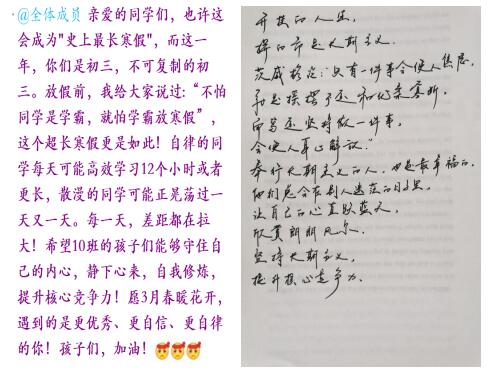 @全体成员 亲爱的同学们，也许这
会成为"史上最长寒假"，而这一
年，你们是初三，不可复制的初
三。放假前，我给大家说过:“不怕
同学是学霸，就怕学霸放寒假”，
这个超长寒假更是如此！自律的同
学每天可能高效学习12个小时或者
更长，散漫的同学可能正晃荡过一
天又一天。每一天，差距都在拉
大！希望10班的孩子们能够守住自
己的内心，静下心来，自我修炼，
提升核心竞争力！愿3月春暖花开，
遇到的是更优秀、更自信、更自律
的你！孩子们，加油！
开挂的人生，
拼的都是长期主义。
茨威格说：只有一件事会使人焦虑，
那是摇摆不
而当还坚持做一件事，
会使人身心解放。”
奉行长期主义的人，也是最幸福的，
他们总会在别人迷茫的日子里，
让自己的心直趋蓝天，
欣赏朗朗风景。
坚持长期主义，
提升核心竞争力。